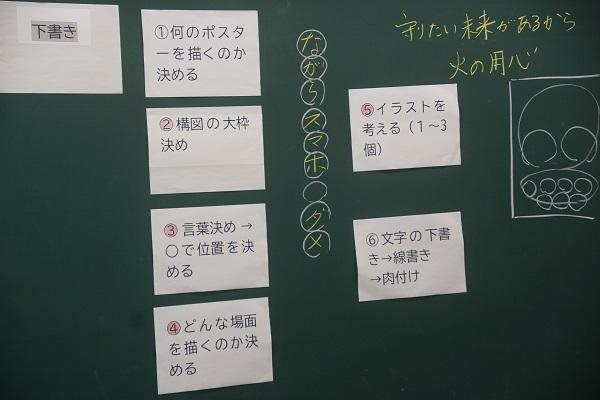 下書き
①何のポスタ
ーを描くのか
決める
②構図の大枠
決め
③言葉決め→
〇で位置を決
める
④どんな場面
を描くのか決
める
ながらスマホ ダメ
守りたい未来があるから
火の用心
⑤イラストを
考える（1～3
個）
⑥文字の下書
き→線書き
→肉付け